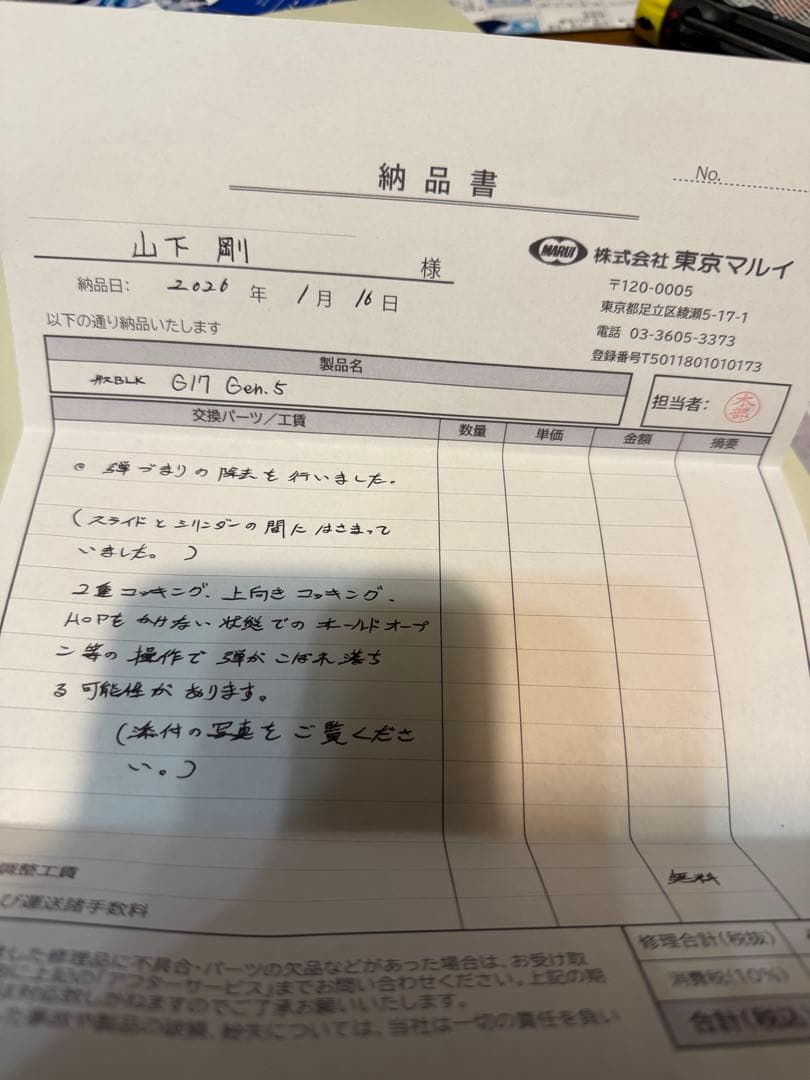 納品書
No.
山下 剛 様
納品日: 2026 年 1 月 16 日
以下の通り納品いたします
MARUI 株式会社 東京マルイ
〒120-0005
東京都足立区綾瀬5-17-1
電話 03-3605-3373
登録番号T5011801010173
製品名
BLK G17 Gen.5
担当者:
交換パーツ/工賃 数量 単価 金額 摘要
弾づまりの除去を行いました。
(スライドとシリンダーの間にはさまって
いました。)
2重コッキング、上向きコッキング、
HOPをかけない状態でのホールドオープ
ン等の操作で弾がこぼれ落ち
る可能性があります。
(添付の写真をご覧くださ
い。)
調整工賃 無料
び運送諸手数料
した修理品に不具合・パーツの欠品などがあった場合は、お受け取
「アフターサービス」までお問い合わせください。上記の期
対応致しかねますのでご了承お願いいたします。
した事故や製品の破損、紛失については、当社は一切の責任を負い
修理合計(税抜)
消費税(10%)
合計(税込